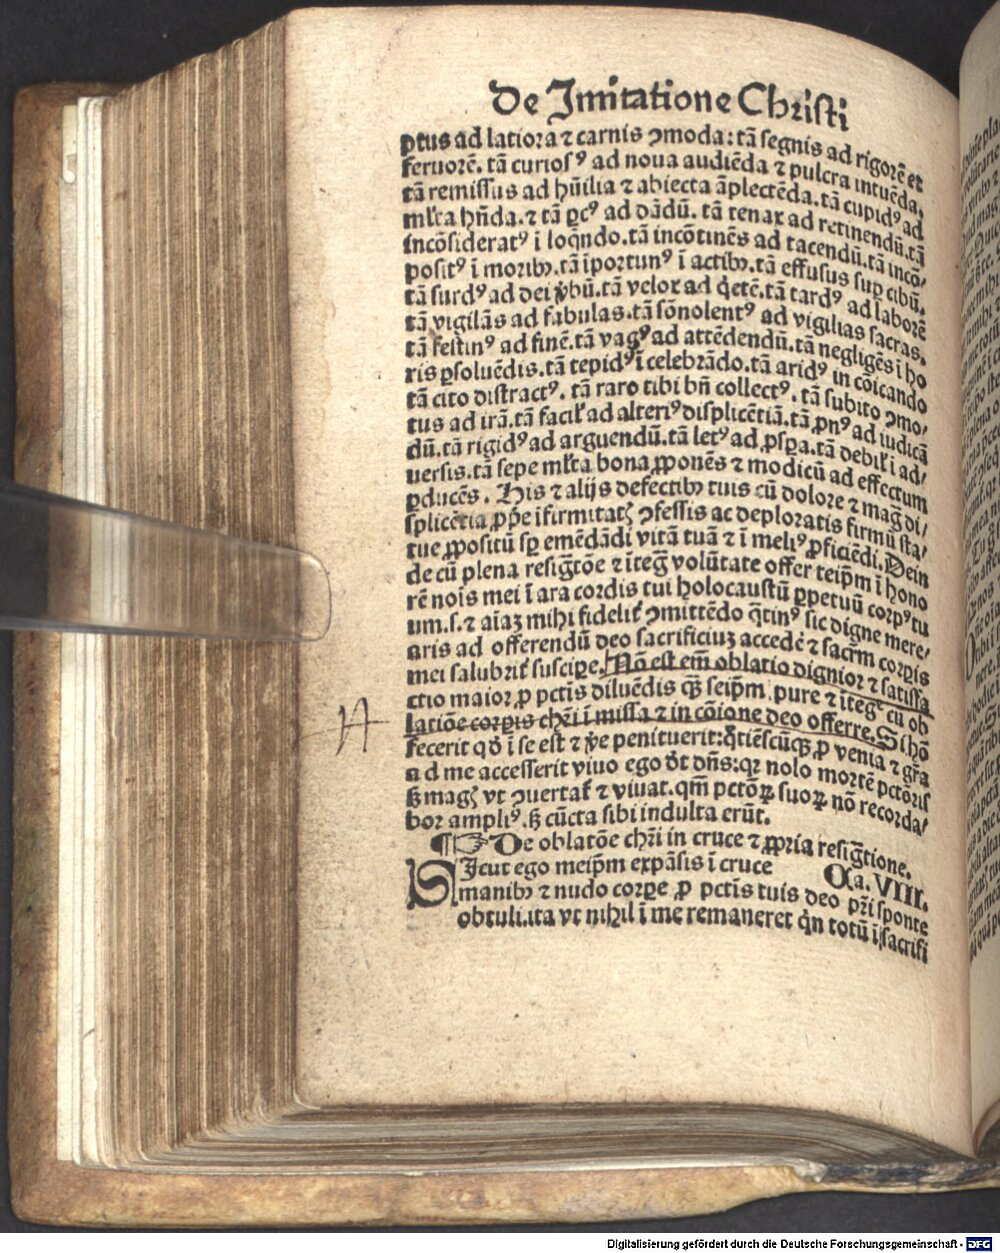 De Imitatione Christi
ptus ad latiora ⁊ carnis ꝯmoda: tã segnis ad rigorẽ et
feruorẽ. tã curiosꝰ ad noua audiẽda ⁊ pulcra intuẽda.
tã remissus ad hũilia ⁊ abiecta ãplectẽda. tã cupidꝰ ad
ml'ta hñda. ⁊ tã ꝑcꝰ ad dãdũ. tã tenax ad retinendũ. tã
incõsideratꝰ ĩ loq̃ndo. tã incõtinẽs ad tacendũ. tã incõ/
positꝰ ĩ moribꝫ. tã ĩportunꝰ ĩ actibꝫ. tã effusus suꝑ cibũ.
tã surdꝰ ad dei v̾bũ. tã velox ad q̇etẽ. tã tardꝰ ad laborẽ
tã vigilãs ad fabulas. tã sõnolentꝰ ad vigilias sacras.
tã festinꝰ ad finẽ. tã vagꝰ ad attẽdendũ. tã negligẽs ĩ ho
ris ꝑsoluẽdis. tã tepidꝰ ĩ celebrãdo. tã aridꝰ in cõicando
tã cito distractꝰ. tã raro tibi bñ collectꝰ. tã subito ꝯmo/
tus ad irã. tã facil' ad alteriꝰ displicẽtiã. tã ꝓnꝰ ad iudicã
dũ. tã rigidꝰ ad arguendũ. tã letꝰ ad ꝓspa. tã debil' ĩ ad/
uersis. tã sepe ml'ta bona ꝓponẽs ⁊ modicũ ad effectum
ꝑducẽs. His ⁊ alijs defectibꝫ tuis cũ dolore ⁊ mag̃ di/
splicẽtia ꝓp̃e ĩfirmitatꝭ ꝯfessis ac deploratis firmũ sta/
tue ꝓpositũ sꝑ emẽdãdi vitã tuã ⁊ ĩ meliꝰ ꝓficiẽdi. Dein
de cũ plena resig̃tõe ⁊ ĩteg̃ volũtate offer teip̃m ĩ hono
rẽ nois mei ĩ ara cordis tui holocaustũ ꝑpetuũ corpꝰ tu
um. s. ⁊ aiaꝫ mihi fidelit' ꝯmittẽdo q̃tinꝰ sic digne mere/
aris ad offerendũ deo sacrificiuꝫ accedẽ ⁊ sacr̃m corꝑis
mei salubrit' suscipe. Nõ est em̃ oblatio dignior ⁊ satisfa
ctio maior ꝓ pctĩs diluẽdis qꝫ̃ seip̃m pure ⁊ ĩtege cũ ob
latiõe corꝑis chr̃i ĩ missa ⁊ in cõione deo offerre. Si hõ
fecerit qđ ĩ se est ⁊ v̾e penituerit: q̃tiẽscũqꝫ ꝓ venia ⁊ gr̃a
ad me accesserit viuo ego dt̃ dñs: qꝛ nolo mortẽ pctõris
sꝫ magꝭ vt ꝯuertat' ⁊ viuat. qm̃ pctõꝝ suoꝝ nõ recorda/
bor ampliꝰ. sꝫ cũcta sibi indulta erũt.
¶☞De oblatõe chr̃i in cruce ⁊ ꝓpria resig̃tione.
SIcut ego meip̃m expãsis ĩ cruce Ca. VIII.
manibꝫ ⁊ nudo corꝑe ꝓ pctĩs tuis deo pr̃i sponte
obtuli. ita vt nihil ĩ me remaneret q̃n totũ ĩ sacrifi
Digitalisierung gefördert durch die Deutsche Forschungsgemeinschaft - DFG